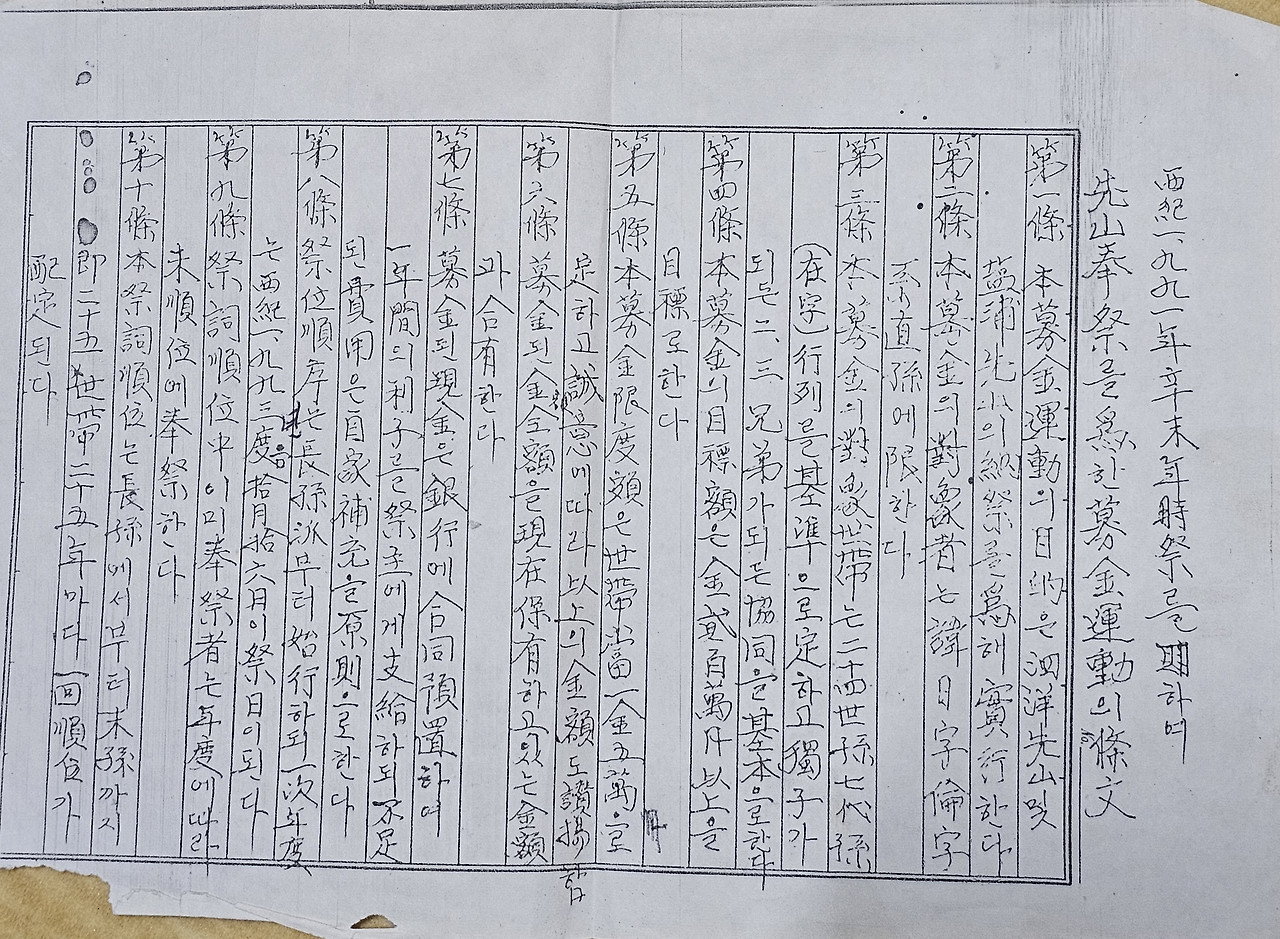 西紀一九九一年辛未年時祭를 期하여
先山奉祭를 爲한 募金運動의 條文
第一條 本募金運動의 目的은 泗洋先山및
藍浦先山의 納祭를 爲해 實行한다
第二條 本募金의 對象者는 諱 日字 倫字
系直孫에 限한다
第三條 本募金의 對象世帶는 二十四世孫七代孫
(在字)行列을 基準으로定하고 獨子가
되든 二、三 兄弟가되든 協同을 基本으로한다
第四條 本募金의 目標額은 金貳百萬원以上을
目標로 한다
第五條 本募金限度額은 世帶當一金五萬으로
定하고 誠意에따라 以上의 金額도 讚揚함
第六條 募金된 金全額을 現在保有하고있는 金額
과 合有한다
第七條 募金된 現金은 銀行에 合同預置하여
一年間의 利子를 祭主에게 支給하되 不足
된 費用은 自家補充을 原則으로한다
第八條 祭位順序는 長孫派부터 始行하되 一次年度
는 西紀一九九三年度 拾月拾六月이 祭日이된다
第九條 祭詞順位中이미奉祭者는 年度에따라
末順位에 奉祭한다
第十條 本祭詞順位는 長孫에서부터 末孫까지
即二十五世帶二十五年마다 一回順位가
配定된다